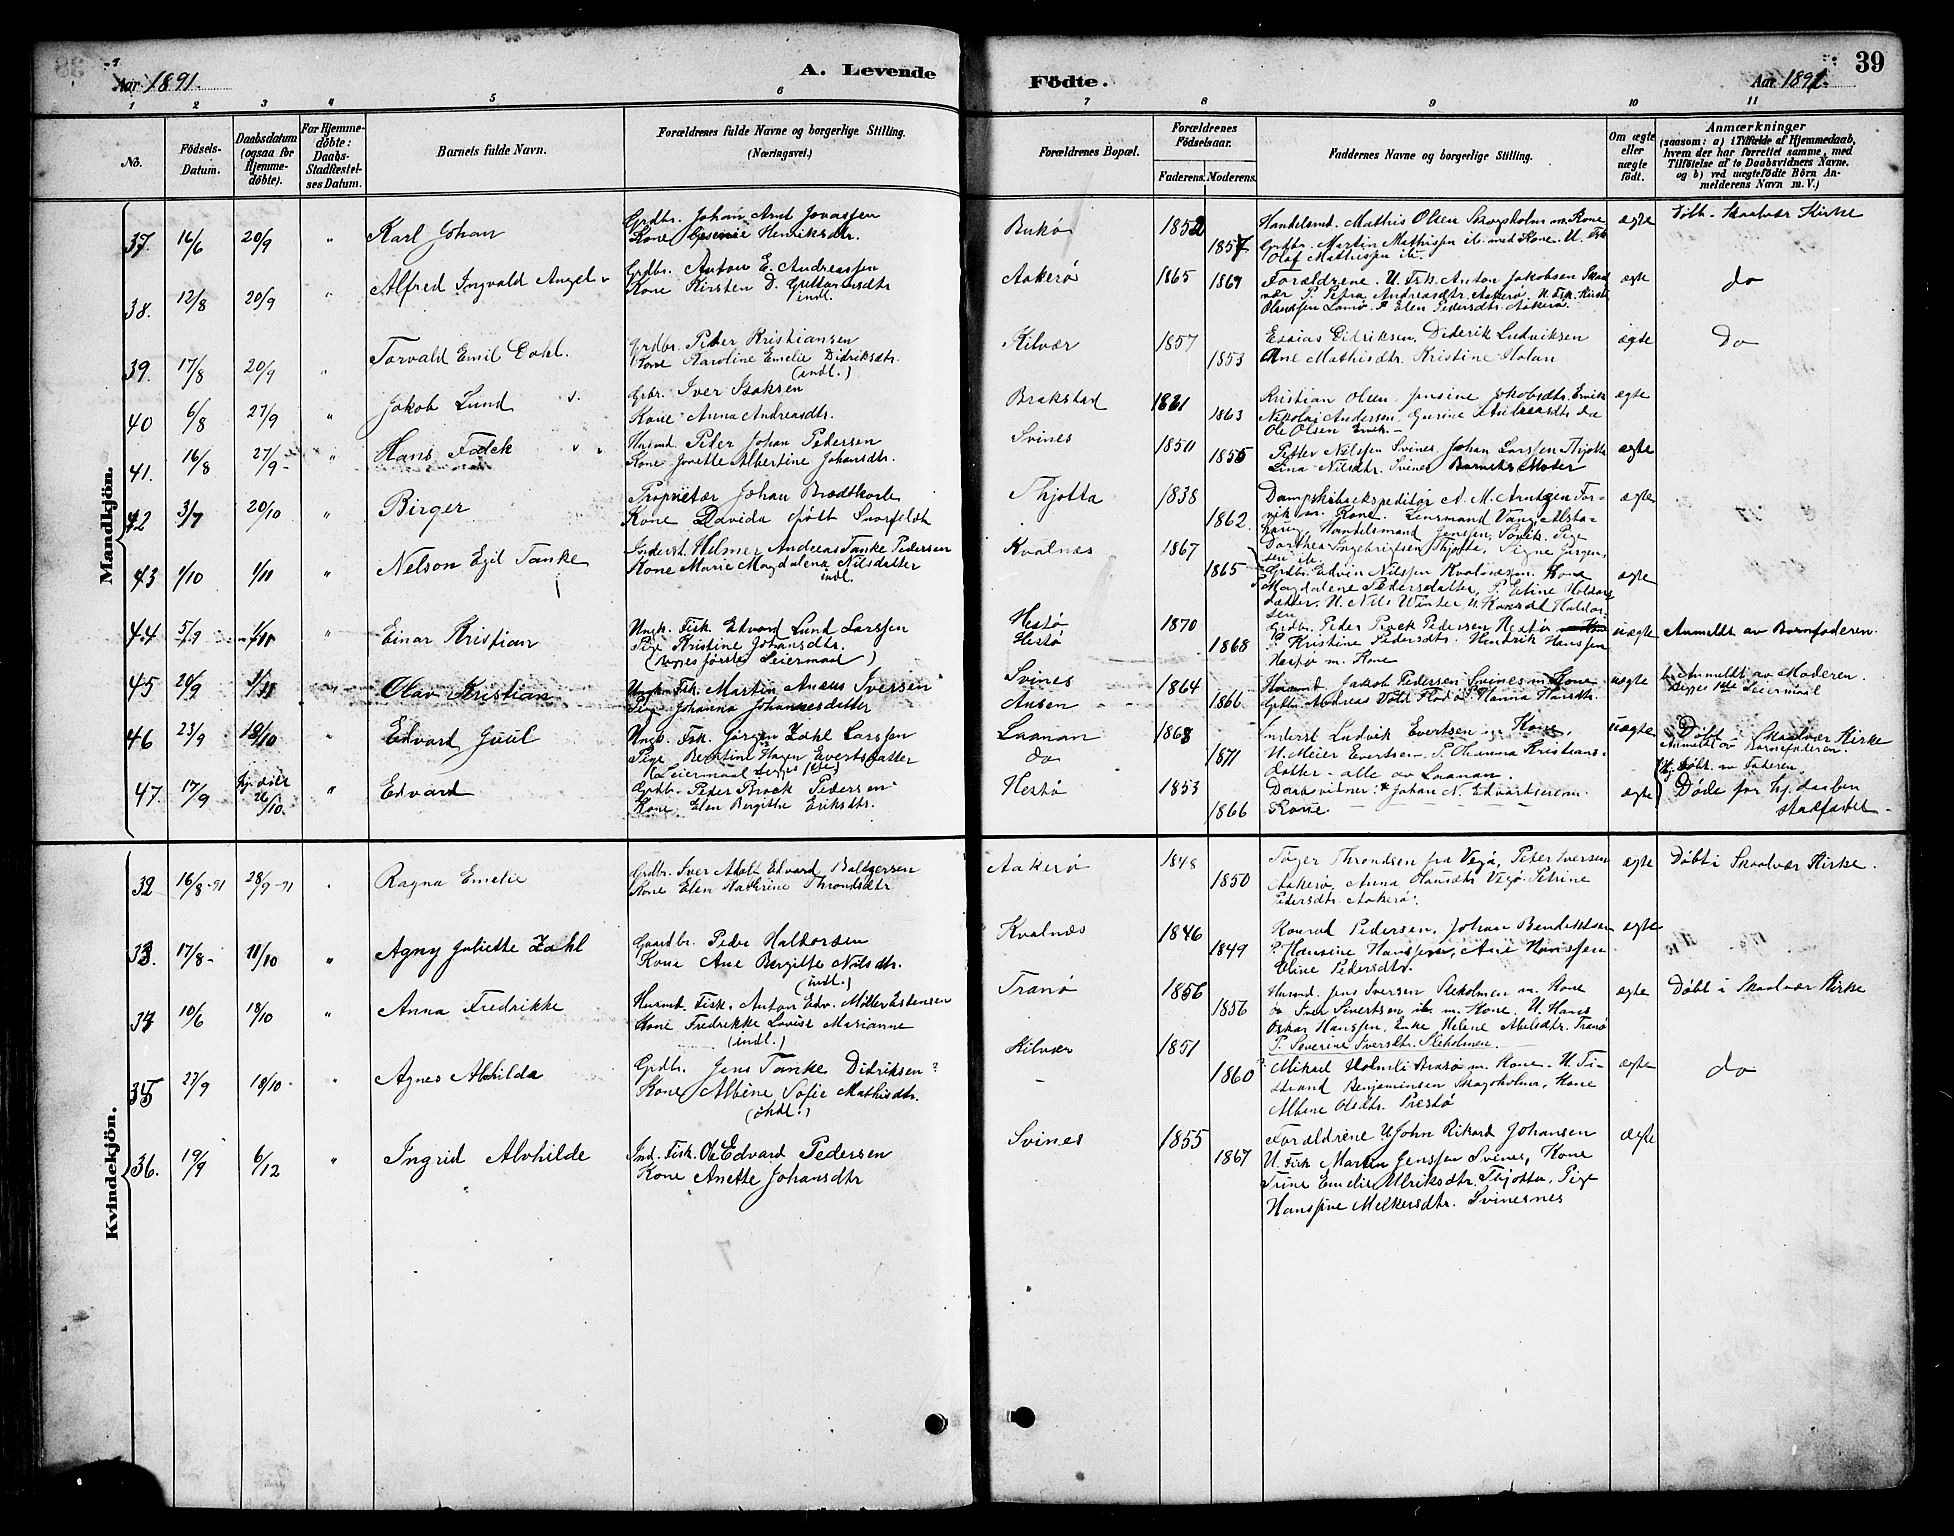 Aar 1891.
A. Levende
Födte.
Aar 1891.
39
1 2 3 4 5 6 7 8 9 10 11
No.
Födsels-Datum.
Daabsdatum (ogsaa for Hjemme-döbte).
For Hjemme-döbte: Daabs-Stadfæstel-ses Datum.
Barnets fulde Navn.
Forældrenes fulde Navne og borgerlige Stilling.
(Næringsvei.)
Forældrenes Bopæl.
Forældrenes Födselsaar.
Faderens. Moderens.
Faddernes Navne og borgerlige Stilling.
Om ægte eller uægte födt.
Anmærkninger
(saasom: a) i Tilfælde af Hjemmedaab,
hvem der har forrettet samme, med
Tilföielse af to Daabsvidners Navne.
og b) ved uægtefödte Börn An-
melderens Navn m. V.)
Mandkjön.
37. 16/6 20/9 " Karl Johan
Grdbr. Johan Arnt Jonassen
Kone Henriksdtr.
Bukø 1852 1857
Handelsmd. Mathis Olsen Skogsholm m. Kone
Grdbr. Martin Mathissen ib. med Kone. U. Fsk
Olaf Mathissen ib.
ægte
Döbt. Skaalvær Kirke
38. 12/8 20/9 " Alfred Ingvald Angel
Grdbr. Anton E. Andreassen
Kone Kirsten D. indl.
Aakerø 1865 1869
Forældrene. U. Fsk. Anton Jakobsen Skaal
vær P. Petra Andreasdtr. Aakerø. U. Fsk.
Lamø. P Elen Pedersdtr. Aakerø.
ægte do
39. 17/8 20/9 " Torvald Emil Dahl.
Grdbr. Peter Kristiansen
Kone Karoline Emelie Didriksdtr.
(indl.)
Kilvær 1857 1853
Esaias Didriksen, Diderik Ludviksen
Ane Mathisdtr. Kristine Holan
ægte do
40 6/8 27/9 " Jakob Lund
Grbr. Iver Isaksen
Kone Anna Andreasdtr.
Brakstad 1861 1863
Kristian Olsen Jensine Jakobsdtr. Ervik
Nikolai Andersen do
Ole Olsen Ervik.
ægte
41. 16/8 27/9 " Hans Falck
Husmd. Peter Johan Pedersen
Kone Jonette Albertine Johansdtr.
Svines 1850 1855
Peter Nilssen Svines, Johan Larssen Thjotta
Lina Nilsdtr. Svines Barnets Moder
ægte
42 3/7 20/10 " Birger
Proprietær Johan Brodtkorb
Kone Davida født Svorfeldt
Thjotta 1838 1862.
Dampskibsekspeditør A. M. Arntzen For-
vik m. Kone. Lensmand Vang Alsta-
haug, Handelsmand Jenssen, Søvik. Pige
Dorthea Ingebrigtsen Thjotta, Signe Jørgen-
sen ib.
ægte
43 1/10 1/11 " Nelson Egil Tanke
Inderst. Helmer Andreas Tanke Pedersen
Kone Marie Magdalena Nilsdatter
indl.
Kvalnæs 1867 1865
Grdbr. Edvin Nilssen Kvalnæs m. Kone
Magdalene Pedersdatter, P. Eline Haldors
datter. U. Nils Winter U. Konrad Haldor-
sen
ægte
44 5/9 1/11 " Einar Kristian
Ungk. Fisk. Edvard Lund Larssen
Pige Kristine Johansdtr.
(Begges første Leiermaal)
Hestø
Hestø 1870 1868
Grdbr. Peder Brock Pedersen Hestø
P. Kristine Pedersdtr. Hendrik Hanssen
Hestø m. Kone
uægte Anmeldt av Barnefaderen.
45 20/9 1/11 " Olav Kristian
Ungk. Fisk. Martin Aneus Iversen
Pige Johanna Johannesdatter
Svines
Ausen 1864 1866
Husmd. Jakob Pedersen Svines m. Kone
Grbr. Andreas Flod Hanna Hansdtr.
uægte Anmeldt av Moderen.
Begges 1ste Leiermaal
46 23/9 18/10 " Edvard Juul
Ungk. Fsk. Jørgen Zahl Larssen
Pige Berntine Hagen Evertsdatter
(Leiermaal begges 1ste)
Laanan
do 1868 1871
Inderst Ludvik Evertsen m. Kone,
U. Meier Evertsen. P. Hanna Kristians-
datter - alle av Laanan.
uægte Døbt Skaalvær Kirke
Anmeldt av Barnefaderen.
47. 17/9 Hj. døbt 26/10. " Edvard
Grdb. Peder Brock Pedersen
Kone Elen Bergitte Eriksdtr.
Hestø 1853 1866
Daabsvidner: Johan N. Edvardsen m.
Kone
ægte Hj. Døbt. av Faderen.
Døde før hj. daaben
stadfæstet
Kvindekjön.
32 16/8-91 28/9-91 Ragna Emelie
Grdbr. Iver Adolt Edvard Baltzersen
Kone Elen Kathrine Throndsdtr
Aakerø 1848 1850
Tøger Throndsen fra Vegø, Peter Iversen
Aakerø, Anna Hansdtr Vegø. Petrine
Pedersdtr. Aakerø.
ægte Døbt i Skaalvær Kirke.
33. 17/8 11/10 " Agny Juliette Zahl
Gaardbr. Peder Haldorsen
Kone Ane Bergitte Nilsdtr.
(indl.)
Kvalnæs 1846 1849
Konrad Pedersen, Johan Benediktsen
P. Hansine Hanssen, Ane Hanssen
Eline Pedersdtr.
ægte
34 10/6 18/10 " Anna Fredrikke
Husmd Fisk. Anton Edv. Møller Estensen
Kone Fredrikke Lovise Marianne
(indl.)
Tranø 1856 1856
Husmd. Jens Iversen Stekolmen m. Kone
og Iver Sivertsen ib. m. Kone. U. Hans
Oskar Hanssen, Enke Helene Abelsdtr. Tranø
P. Severine Iversdtr. Stekolmen.
ægte Døbt i Skaalvær Kirke
35 27/9 18/10 " Agnes Alvhilda
Grdb. Jens Tanke Didriksen
Kone Albine Sofie Mathisdtr.
(indl.)
Kilvær 1851 1860
Mikael Holmli Brasø m. Kone. U. Ti-
strand Benjaminsen Skogsholm, Kone
Albine Olsdtr. Prestø
ægte do
36. 19/9 6/12 " Ingrid Alvhilde
Ind. Fisk. Ole Edvard Pedersen
Kone Anette Johansdtr
Svines 1855 1867
Forældrene U John Rikard Johansen
U. Fisk Martin Jenssen Svines, Kone
Trine Emelie Ulriksdtr. Thjotta, Pige
Hanssine Melkersdtr. Svinesnes
ægte